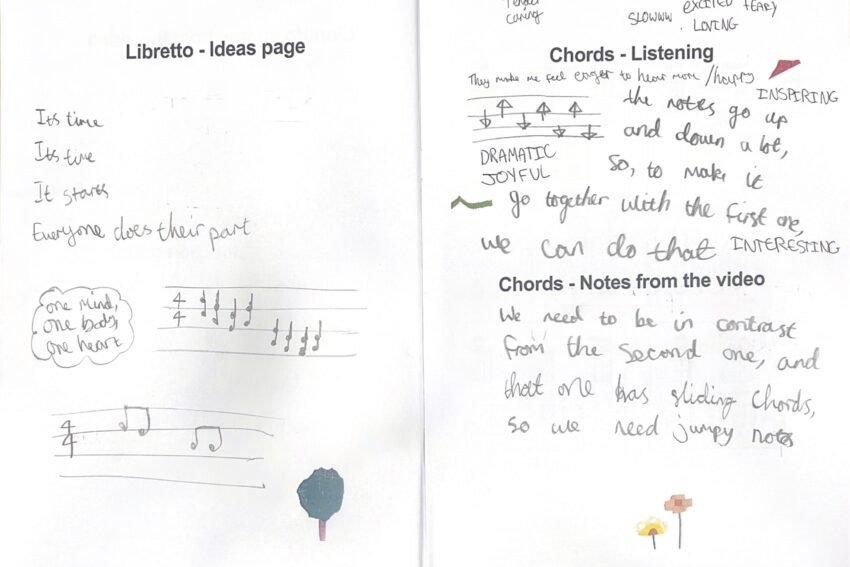 Libretto - Ideas page
Its time
Its time
It starts
Everyone does their part
one mind,
one body,
one heart
4
4
4
4
Tender
caring
EXCITED TEARY
SLOWWW
. LOVING
Chords - Listening
They make me feel eager to hear more /happy
INSPIRING
the notes go up
and down a lot,
DRAMATIC
JOYFUL
so, to make it
go together with the first one,
we can do that INTERESTING
Chords - Notes from the video
We need to be in contrast
from the second one, and
that one has sliding chords,
so we need jumpy notes